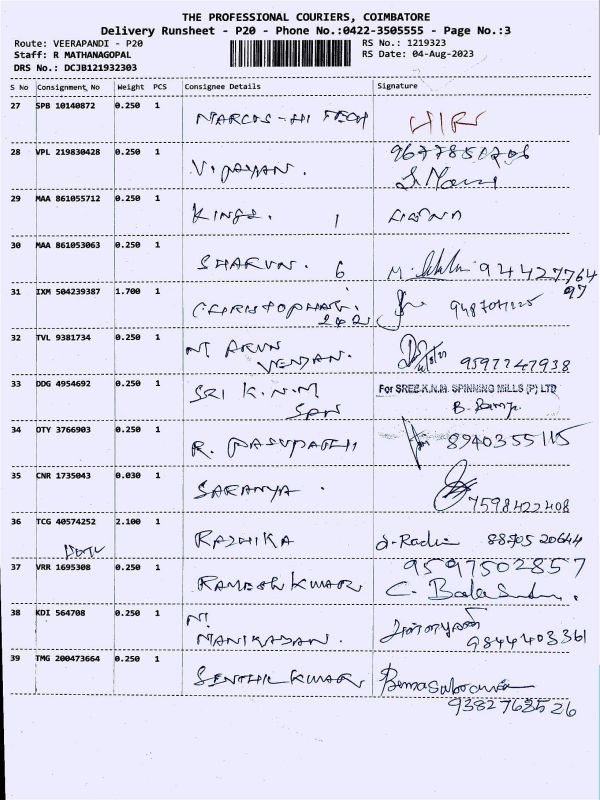 THE PROFESSIONAL COURIERS, COIMBATORE
Delivery Runsheet - P20 - Phone No.:0422-3505555 - Page No.:3
Route: VEERAPANDI - P20 RS No.: 1219323
Staff: R MATHANAGOPAL RS Date: 04-Aug-2023
DRS No.: DCJB121932303
S No Consignment No Weight PCS Consignee Details Signature
27 SPB 10140872 0.250 1
NARCOS - HI TECH
28 VPL 219830428 0.250 1
VIJAYAN.
29 MAA 861055712 0.250 1
KINGS. 1
30 MAA 861053063 0.250 1
SHARUN. 6 M. 94427764
97
31 IXM 504239387 1.700 1
CHRISTOPHAR.
202
32 TVL 9381734 0.250 1
NT ARUN
VENDAN. 9597747938
33 DDG 4954692 0.250 1 For SREE K.N.M. SPINNING MILLS (P) LTD
SRI K.N.M
SPN
34 OTY 3766903 0.250 1
R. PASUPATHI 8940355115
35 CNR 1735043 0.030 1
SARANYA. 7598422408
36 TCG 40574252 2.100 1
RADHIKA 88705 20644
37 VRR 1695308 0.250 1 9597502857
RAMESH KUMAR C. Bala
38 KDI 564708 0.250 1
NT.
MANIKADAN. 9844403361
39 TMG 200473664 0.250 1
SENTHIL KUMAR
9382763526